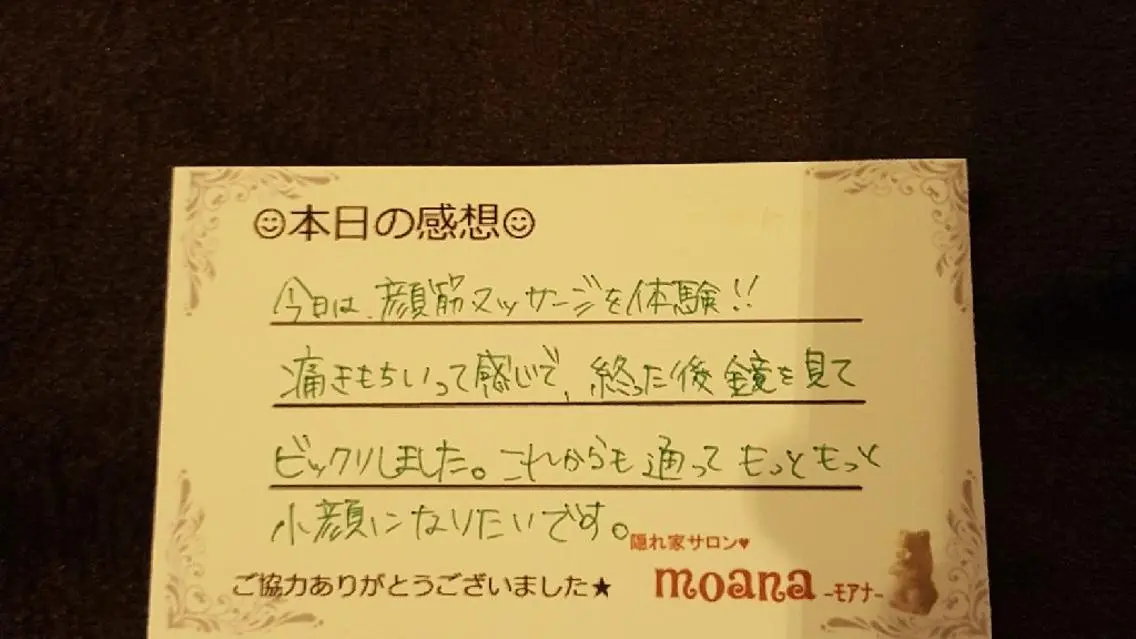 ☺本日の感想☺
今日は、顔筋マッサージを体験!!
痛きもちいって感じで、終った後鏡を見て
ビックリしました。これからも通ってもっともっと
小顔になりたいです。
隠れ家サロン♥
moana -モアナ-
ご協力ありがとうございました★